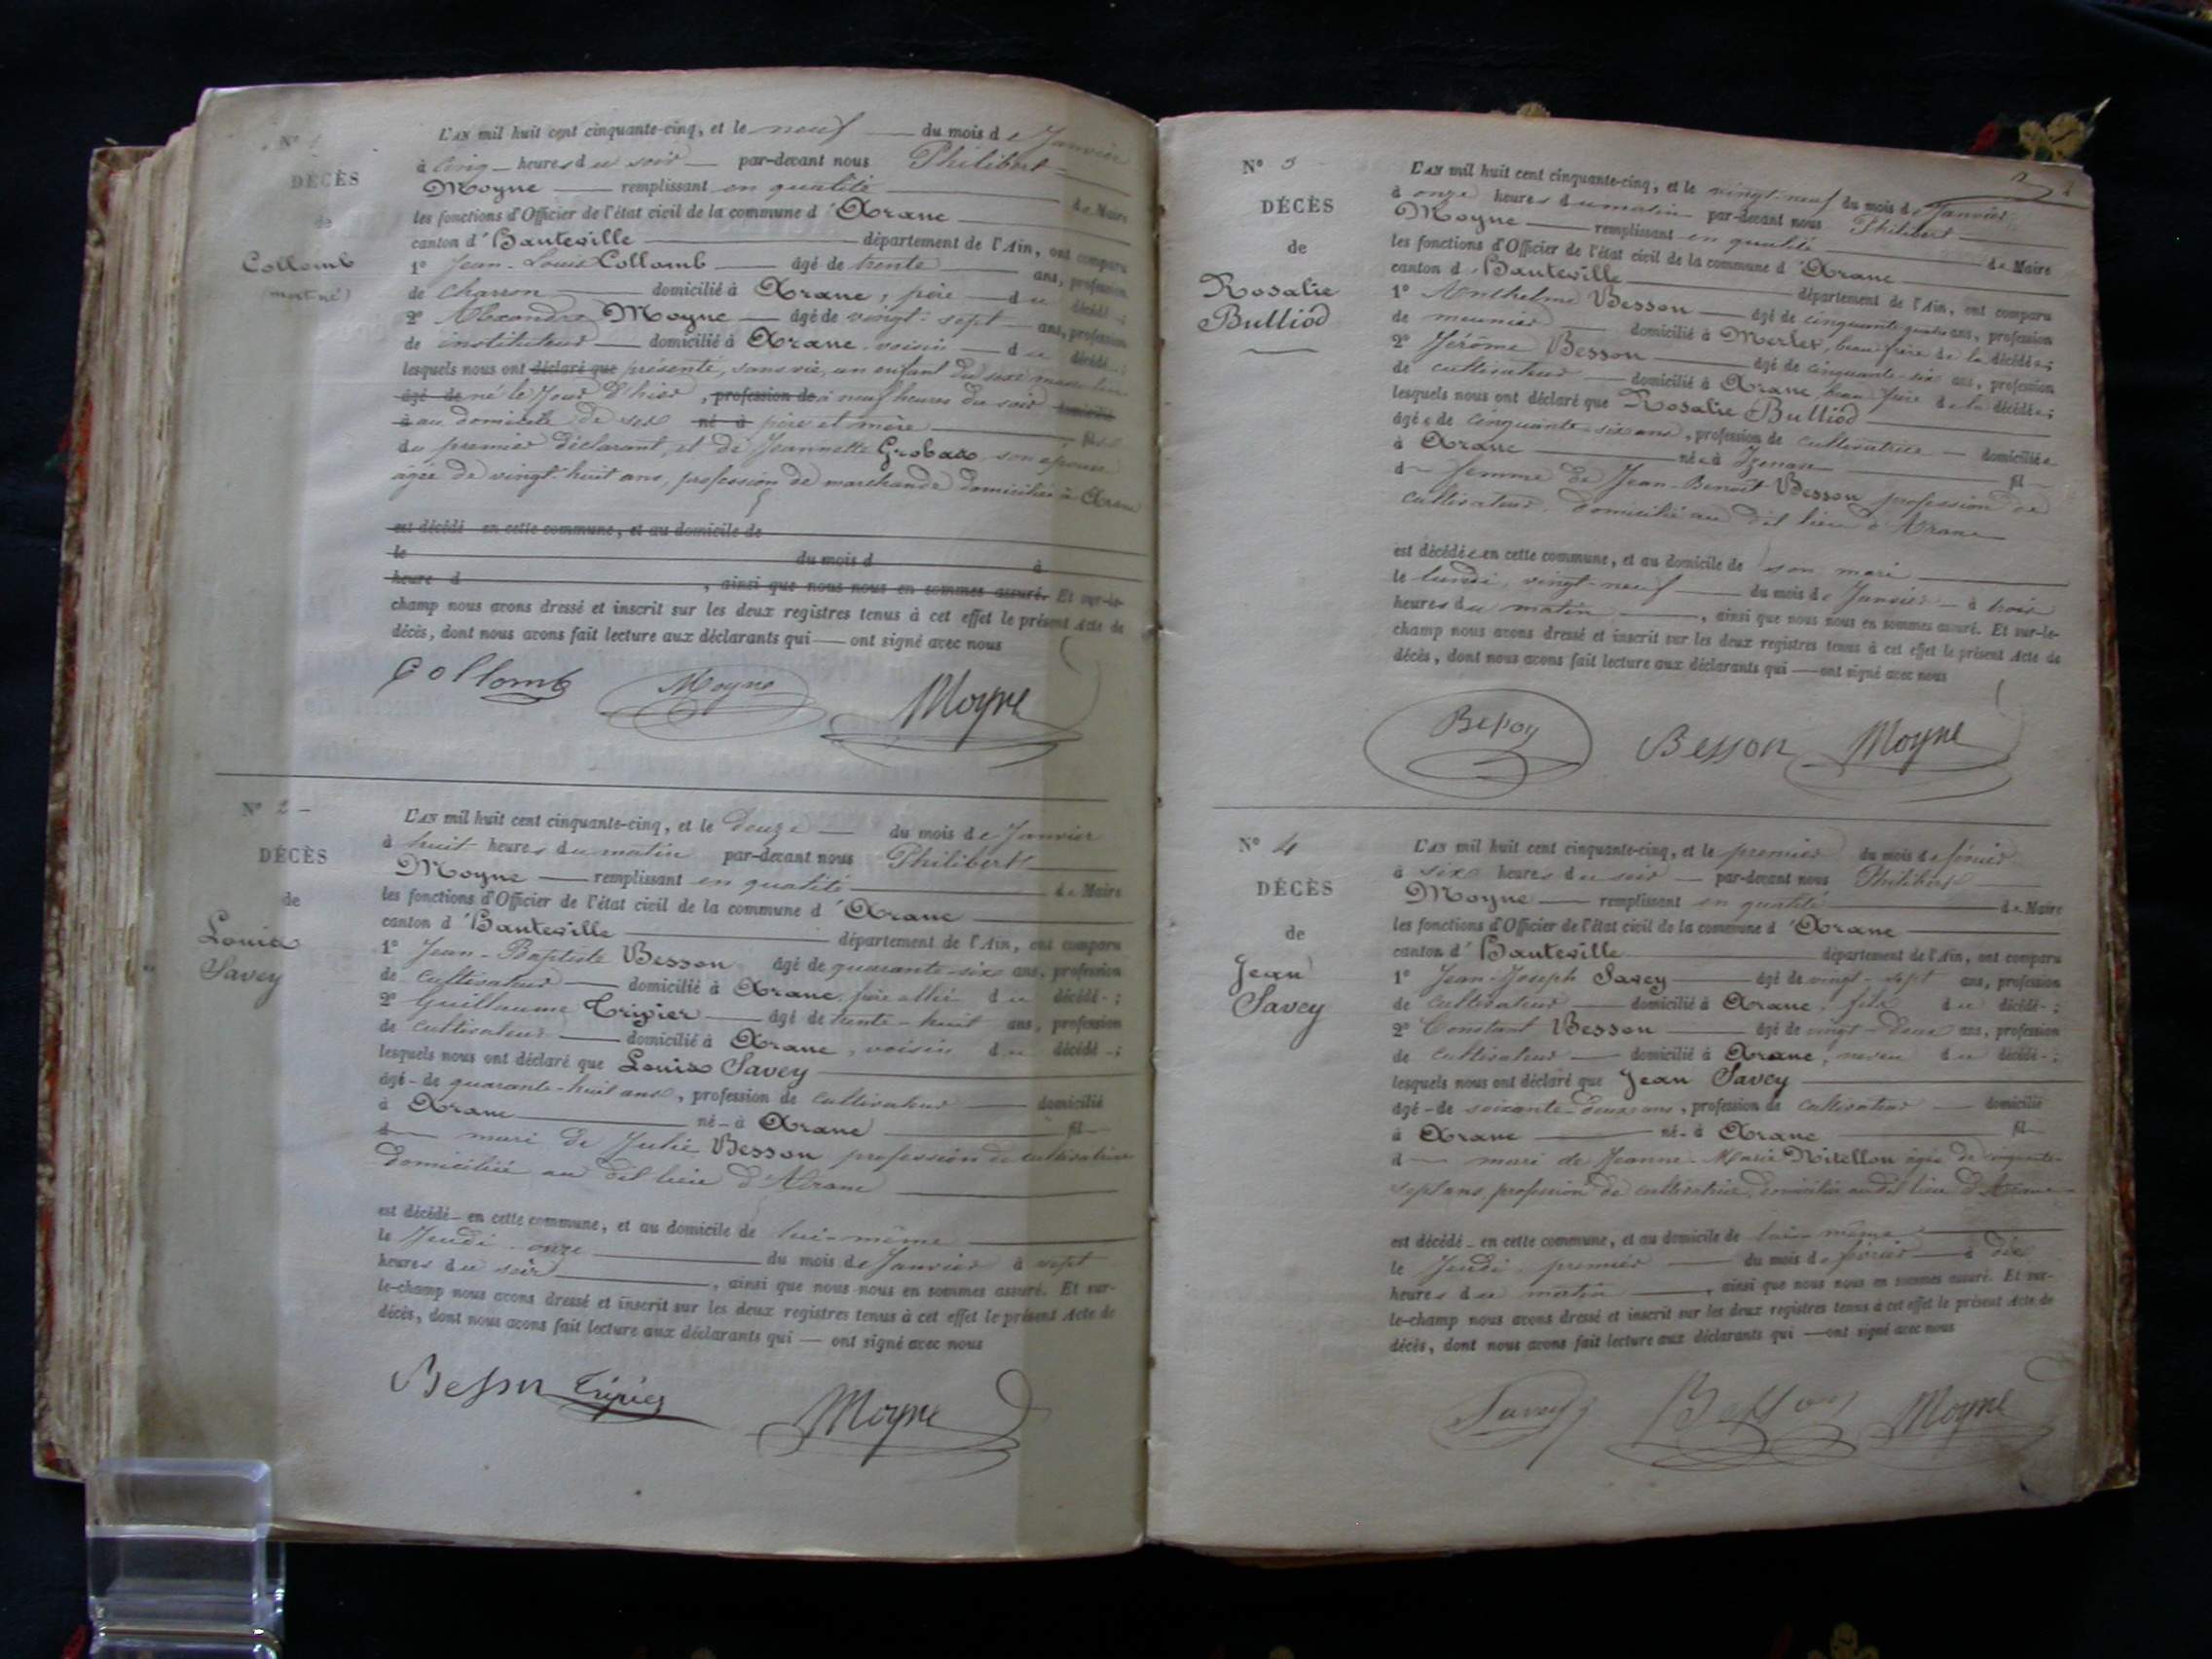 N° 1
DÉCÈS
de
Collomb
(mort né)
L'AN mil huit cent cinquante-cinq, et le neuf du mois de Janvier
à cinq heures du soir par-devant nous Philibert
Moyne remplissant en qualité de Maire
les fonctions d'Officier de l'état civil de la commune d'Arane
canton d'Hauteville département de l'Ain, ont comparu
1° Jean-Louis Collomb âgé de trente ans, profession
de charron domicilié à Arane, père du décédé;
2° Alexandre Moyne âgé de vingt-sept ans, profession
de instituteur domicilié à Arane, voisin du décédé;
lesquels nous ont déclaré que présenté, sans vie, un enfant du sexe masculin
âgé de né le jour d'hier, profession de à neuf heures du soir domicilié
à au domicile de ses né à père et mère fils
du premier déclarant, et de Jeannette Grobas son épouse
âgée de vingt-huit ans, profession de marchande domiciliée à Arane
est décédé en cette commune, et au domicile de
le du mois d à
heure d , ainsi que nous nous en sommes assuré. Et sur-le-
champ nous avons dressé et inscrit sur les deux registres tenus à cet effet le présent Acte de
décès, dont nous avons fait lecture aux déclarants qui ont signé avec nous
Collomb Moyne Moyne
N° 2
DÉCÈS
de
Louis
Savey
L'AN mil huit cent cinquante-cinq, et le douze du mois de Janvier
à huit heures du matin par-devant nous Philibert
Moyne remplissant en qualité de Maire
les fonctions d'Officier de l'état civil de la commune d'Arane
canton d'Hauteville département de l'Ain, ont comparu
1° Jean-Baptiste Besson âgé de quarante-six ans, profession
de cultivateur domicilié à Arane, frère allié du décédé;
2° Guillaume Tripier âgé de trente-huit ans, profession
de cultivateur domicilié à Arane, voisin du décédé;
lesquels nous ont déclaré que Louis Savey
âgé de quarante-huit ans, profession de cultivateur domicilié
à Arane né à Arane fil
d mari de Julie Besson profession de cultivatrice
domiciliée au dit lieu d'Arane
est décédé en cette commune, et au domicile de lui-même
le Jeudi onze du mois de Janvier à sept
heures du soir , ainsi que nous nous en sommes assuré. Et sur-
le-champ nous avons dressé et inscrit sur les deux registres tenus à cet effet le présent Acte de
décès, dont nous avons fait lecture aux déclarants qui ont signé avec nous
Besson Tripier Moyne
N° 3
DÉCÈS
de
Rosalie
Bulliod
L'AN mil huit cent cinquante-cinq, et le vingt-neuf du mois de Janvier
à onze heures du matin par-devant nous Philibert
Moyne remplissant en qualité de Maire
les fonctions d'Officier de l'état civil de la commune d'Arane
canton d'Hauteville département de l'Ain, ont comparu
1° Anthelme Besson âgé de cinquante-quatre ans, profession
de meunier domicilié à Merlet, beau frère de la décédée;
2° Jérôme Besson âgé de cinquante-six ans, profession
de cultivateur domicilié à Arane, beau frère de la décédée;
lesquels nous ont déclaré que Rosalie Bulliod
âgée de cinquante-six ans, profession de cultivatrice domiciliée
à Arane née à Izenave fil
d femme de Jean-Benoît Besson profession de
cultivateur, domicilié au dit lieu d'Arane
est décédée en cette commune, et au domicile de son mari
le lundi vingt-neuf du mois de Janvier à trois
heures du matin , ainsi que nous nous en sommes assuré. Et sur-le-
champ nous avons dressé et inscrit sur les deux registres tenus à cet effet le présent Acte de
décès, dont nous avons fait lecture aux déclarants qui ont signé avec nous
Besson Besson Moyne
N° 4
DÉCÈS
de
Jean
Savey
L'AN mil huit cent cinquante-cinq, et le premier du mois de février
à six heures du soir par-devant nous Philibert
Moyne remplissant en qualité de Maire
les fonctions d'Officier de l'état civil de la commune d'Arane
canton d'Hauteville département de l'Ain, ont comparu
1° Jean-Joseph Savey âgé de vingt-sept ans, profession
de cultivateur domicilié à Arane, fils du décédé;
2° Constant Besson âgé de vingt-deux ans, profession
de cultivateur domicilié à Arane, neveu du décédé;
lesquels nous ont déclaré que Jean Savey
âgé de soixante-deux ans, profession de cultivateur domicilié
à Arane né à Arane fil
d mari de Jeanne-Marie Nitellon âgée de cinquante-
sept ans, profession de cultivatrice, domiciliée audit lieu d'Arane
est décédé en cette commune, et au domicile de lui-même
le Jeudi premier du mois de février à dix
heures du matin , ainsi que nous nous en sommes assuré. Et sur-
le-champ nous avons dressé et inscrit sur les deux registres tenus à cet effet le présent Acte de
décès, dont nous avons fait lecture aux déclarants qui ont signé avec nous
Savey Besson Moyne